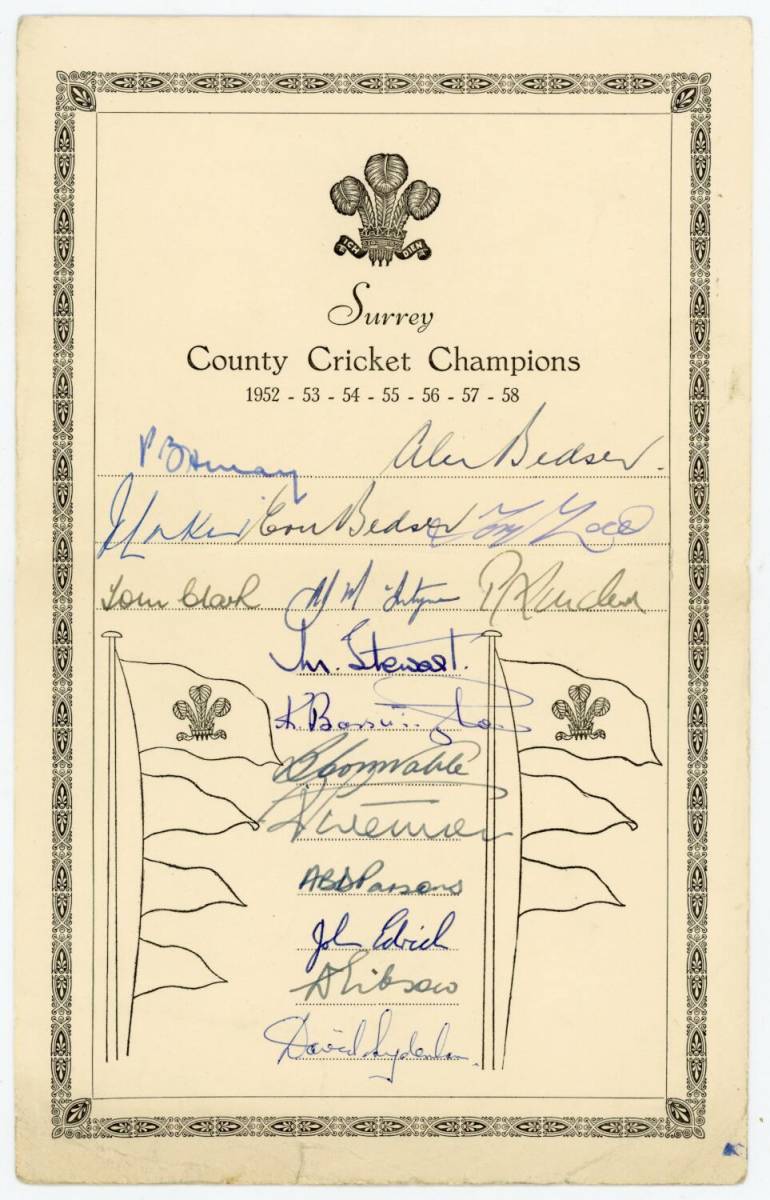 ICH DIEN
Surrey
County Cricket Champions
1952 - 53 - 54 - 55 - 56 - 57 - 58
P B H May Alec Bedser.
J Laker Eric Bedser Tony Lock
Tom Clark A J McIntyre
M. Stewart.
K Barrington
B Constable
R Swetman
ABD Parsons
John Edrich
D Gibson
David Sydenham.